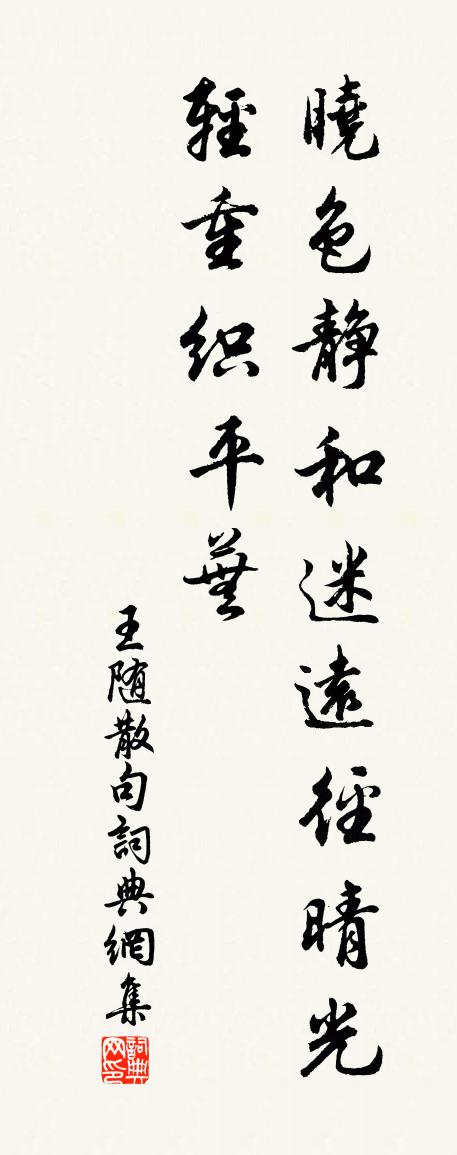 曉色静和迷遠徑晴光
輕重織平蕪
王随散句詞典網集
詞典网印